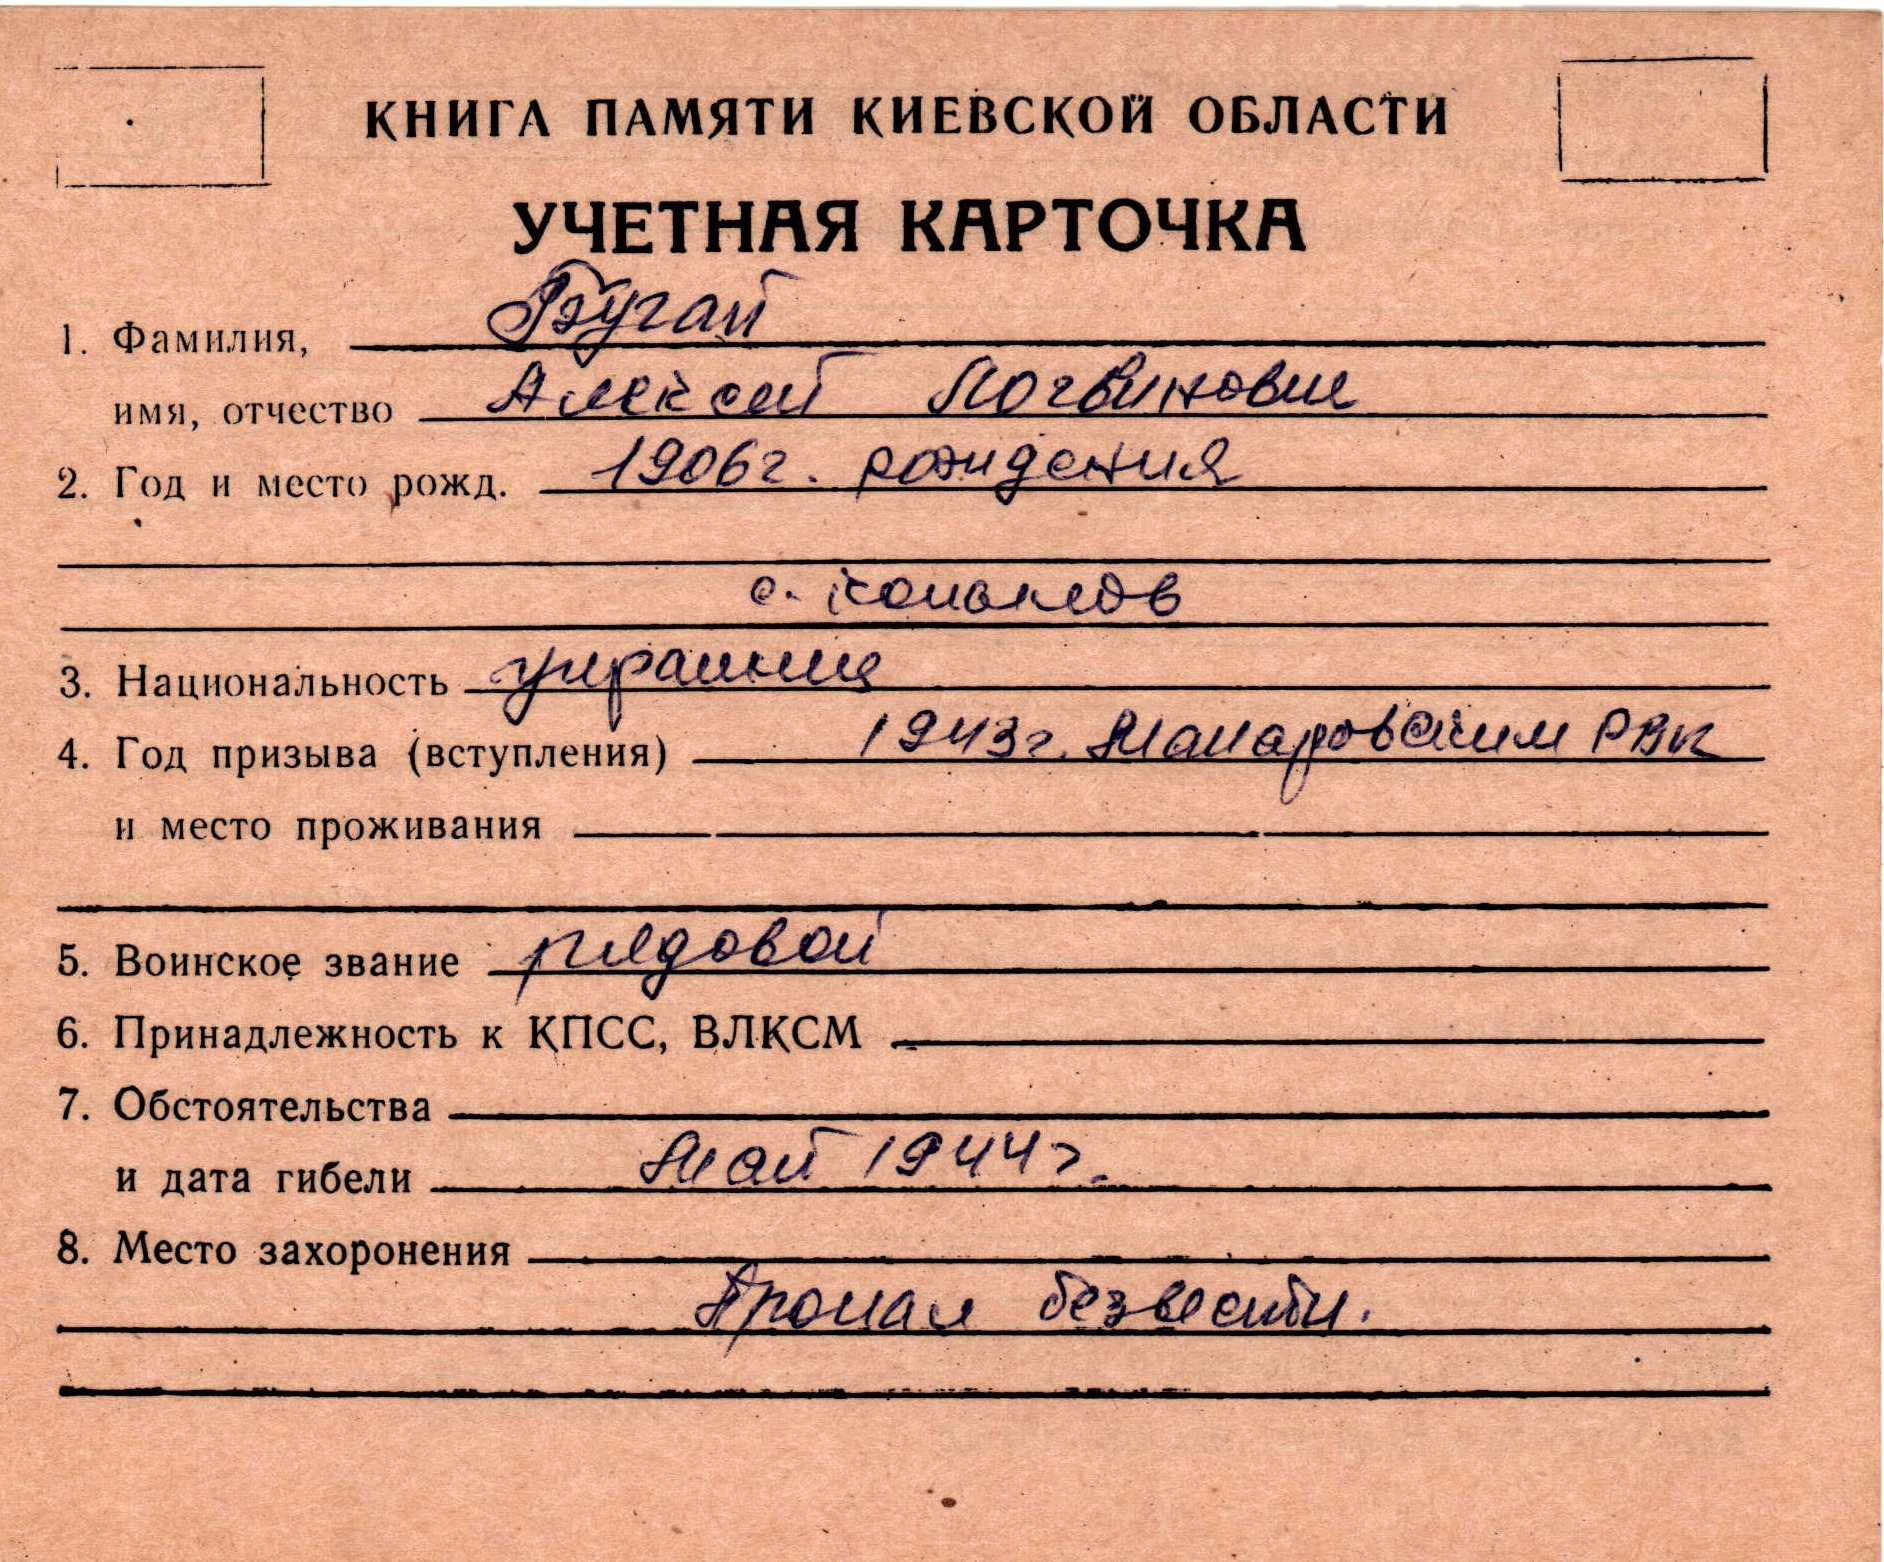 КНИГА ПАМЯТИ КИЕВСКОЙ ОБЛАСТИ
УЧЕТНАЯ КАРТОЧКА
1. Фамилия, Бугай
имя, отчество Алексей Логвинович
2. Год и место рожд. 1906г. рождения
с.
3. Национальность украинец
4. Год призыва (вступления) 1943г. Макаровским РВК
и место проживания
5. Воинское звание рядовой
6. Принадлежность к КПСС, ВЛКСМ
7. Обстоятельства
и дата гибели Май 1944г.
8. Место захоронения
Пропал безвести.